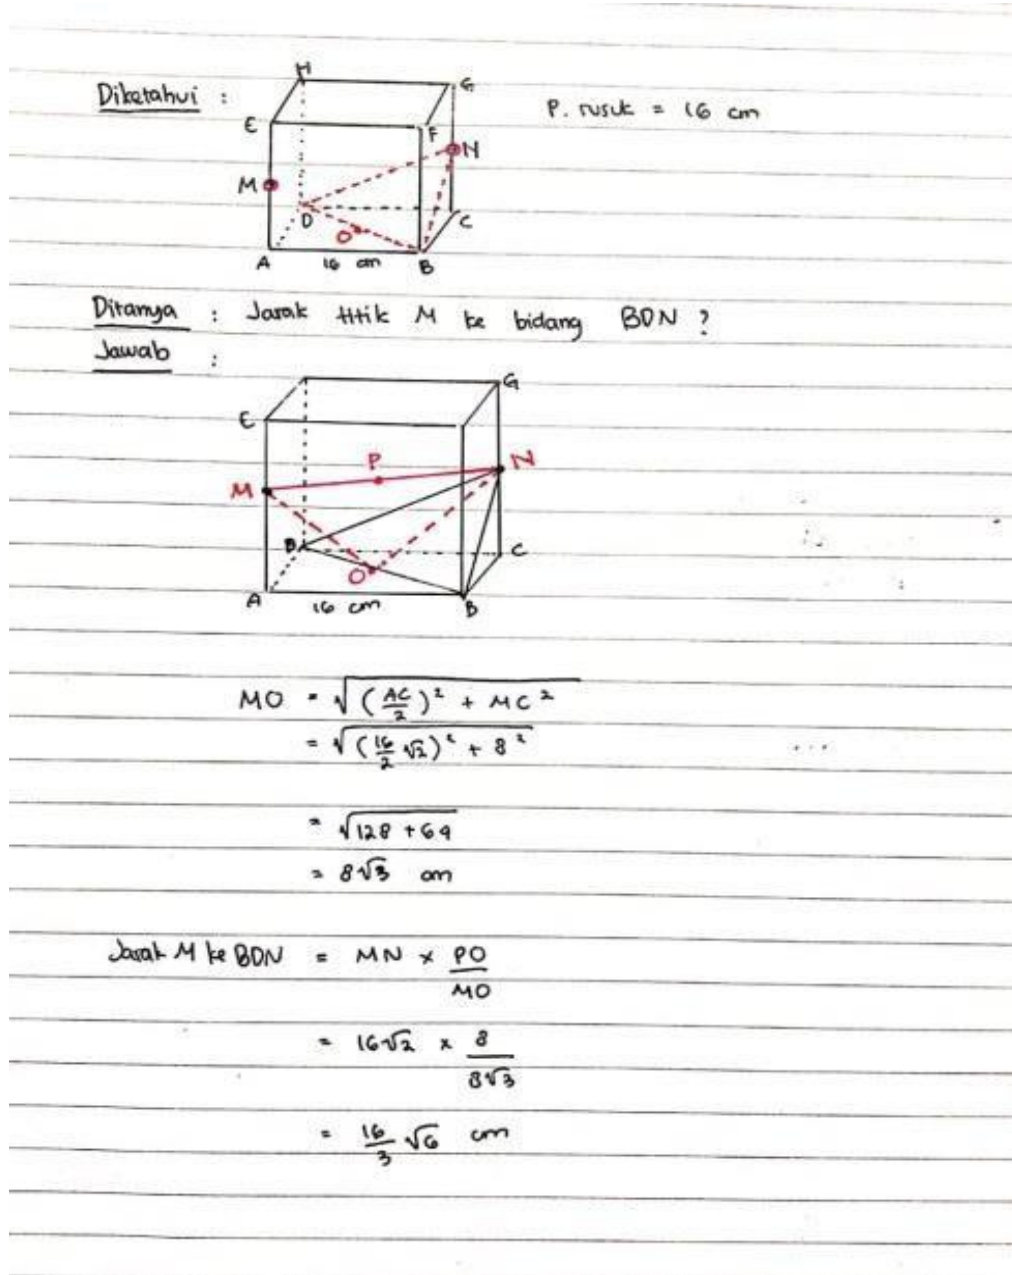 Diketahui :
P. rusuk = 16 cm
H
G
E
F
N
M
D
C
O
A
16 cm
B
Ditanya : Jarak titik M ke bidang BDN ?
Jawab :
G
E
P
N
M
D
C
O
A
16 cm
B
MO = √((AC/2)² + MC²)
= √((16/2 √2)² + 8²)
= √(128 + 64)
= 8√3 cm
Jarak M ke BDN = MN × PO/MO
= 16√2 × 8/8√3
= 16/3 √6 cm